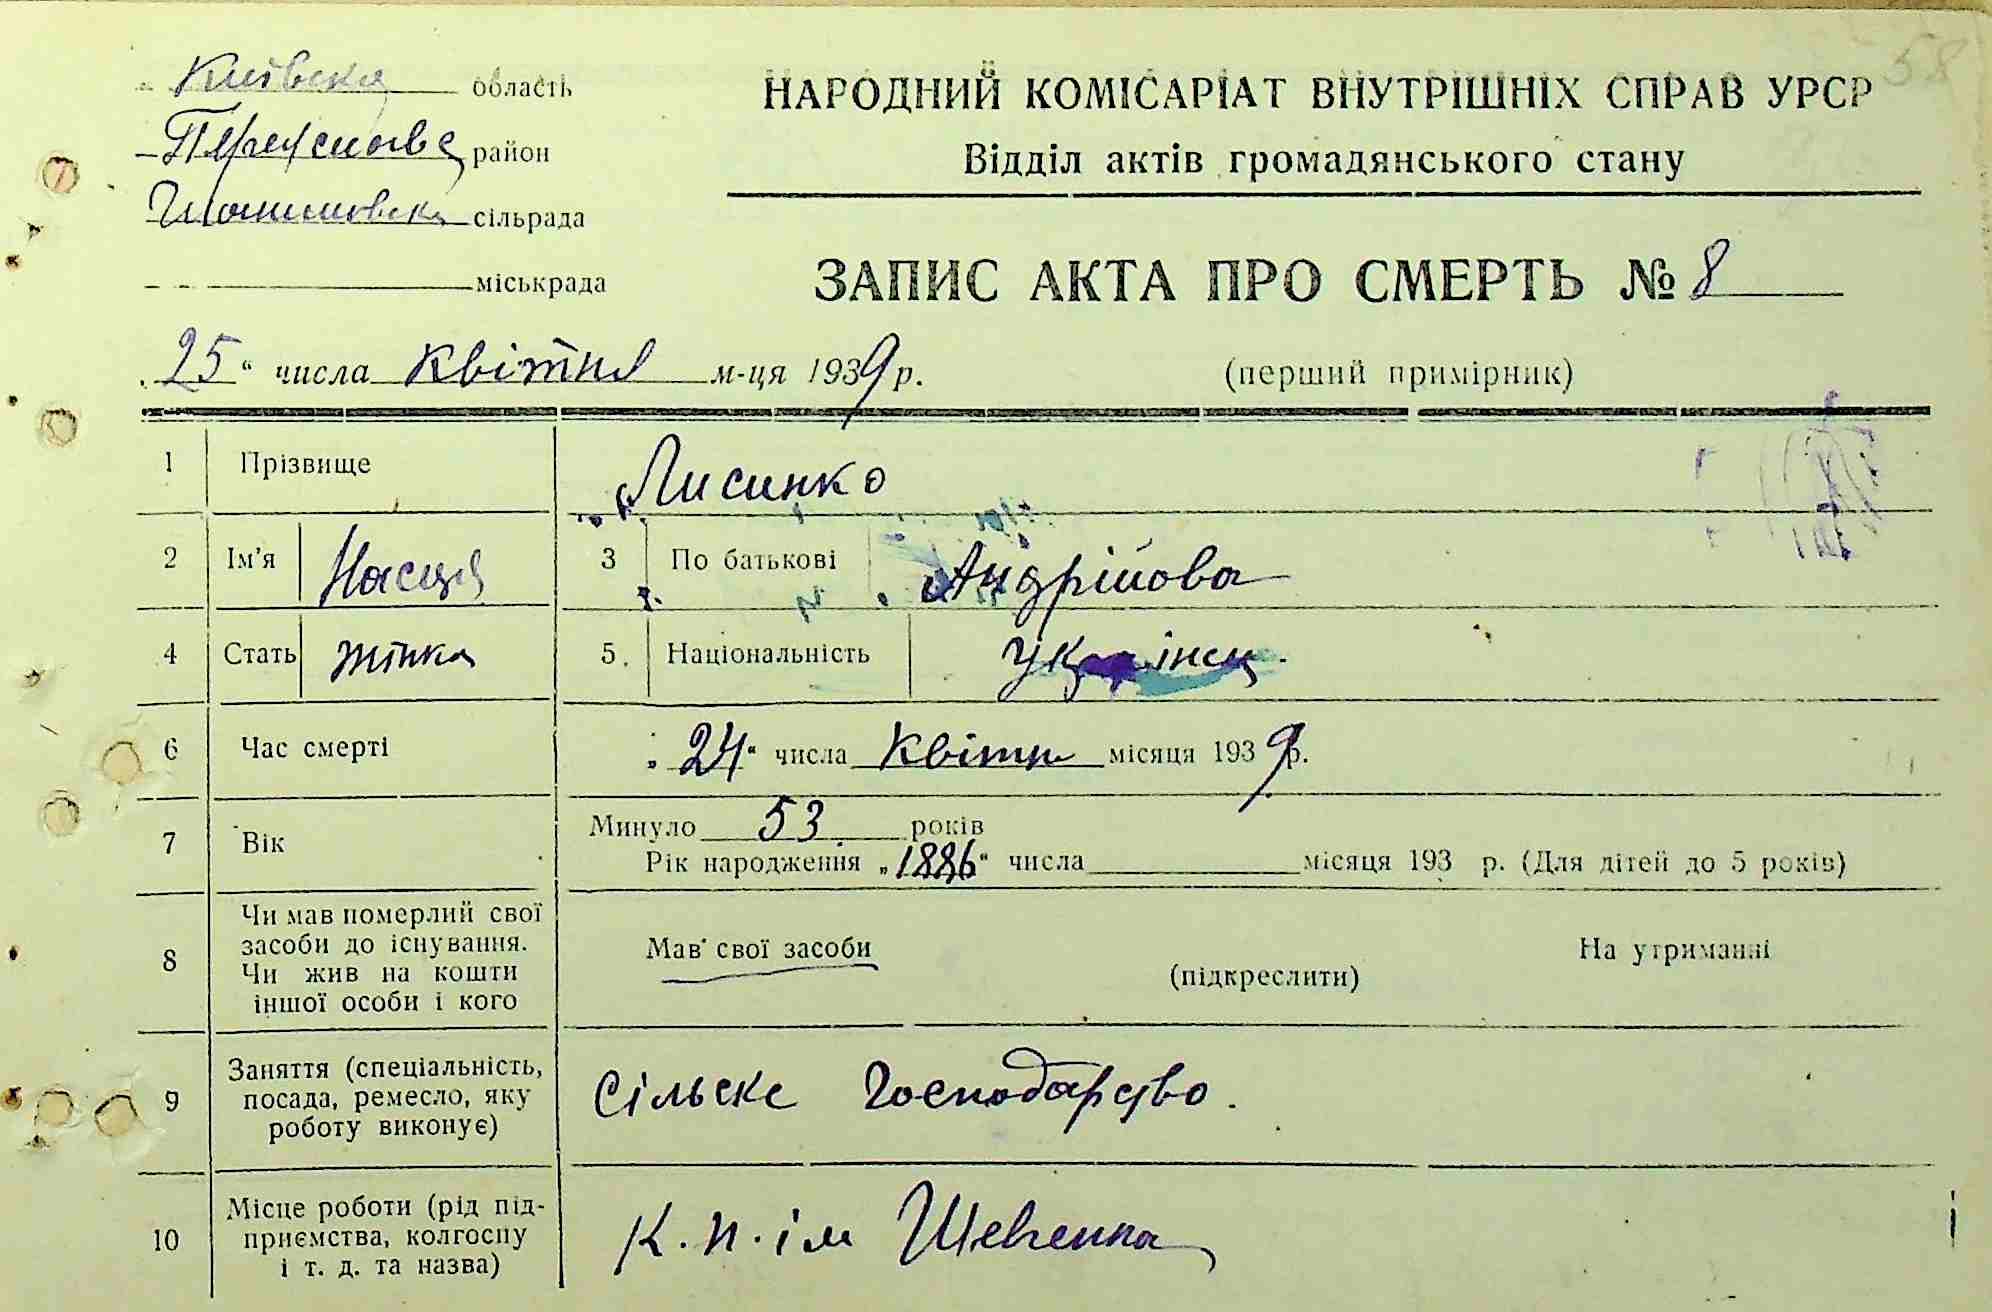 58
Київська область
НАРОДНИЙ КОМІСАРІАТ ВНУТРІШНІХ СПРАВ УРСР
район
Відділ актів громадянського стану
сільрада
міськрада
ЗАПИС АКТА ПРО СМЕРТЬ № 8
„25“ числа квітня м-ця 1939 р.
(перший примірник)
1 Прізвище Лисинко
2 Ім'я Настя 3 По батькові Андрійова
4 Стать жінка 5. Національність Українц
6 Час смерті „24“ числа Квітн місяця 1939 р.
7 Вік Минуло 53 років
Рік народження „1886“ числа місяця 193 р. (Для дітей до 5 років)
8 Чи мав померлий свої
засоби до існування.
Чи жив на кошти
іншої особи і кого
Мав свої засоби
(підкреслити)
На утриманні
9 Заняття (спеціальність,
посада, ремесло, яку
роботу виконує)
Сільске Господарство.
10 Місце роботи (рід під-
приємства, колгоспу
і т. д. та назва)
К. п. ім Шевченка